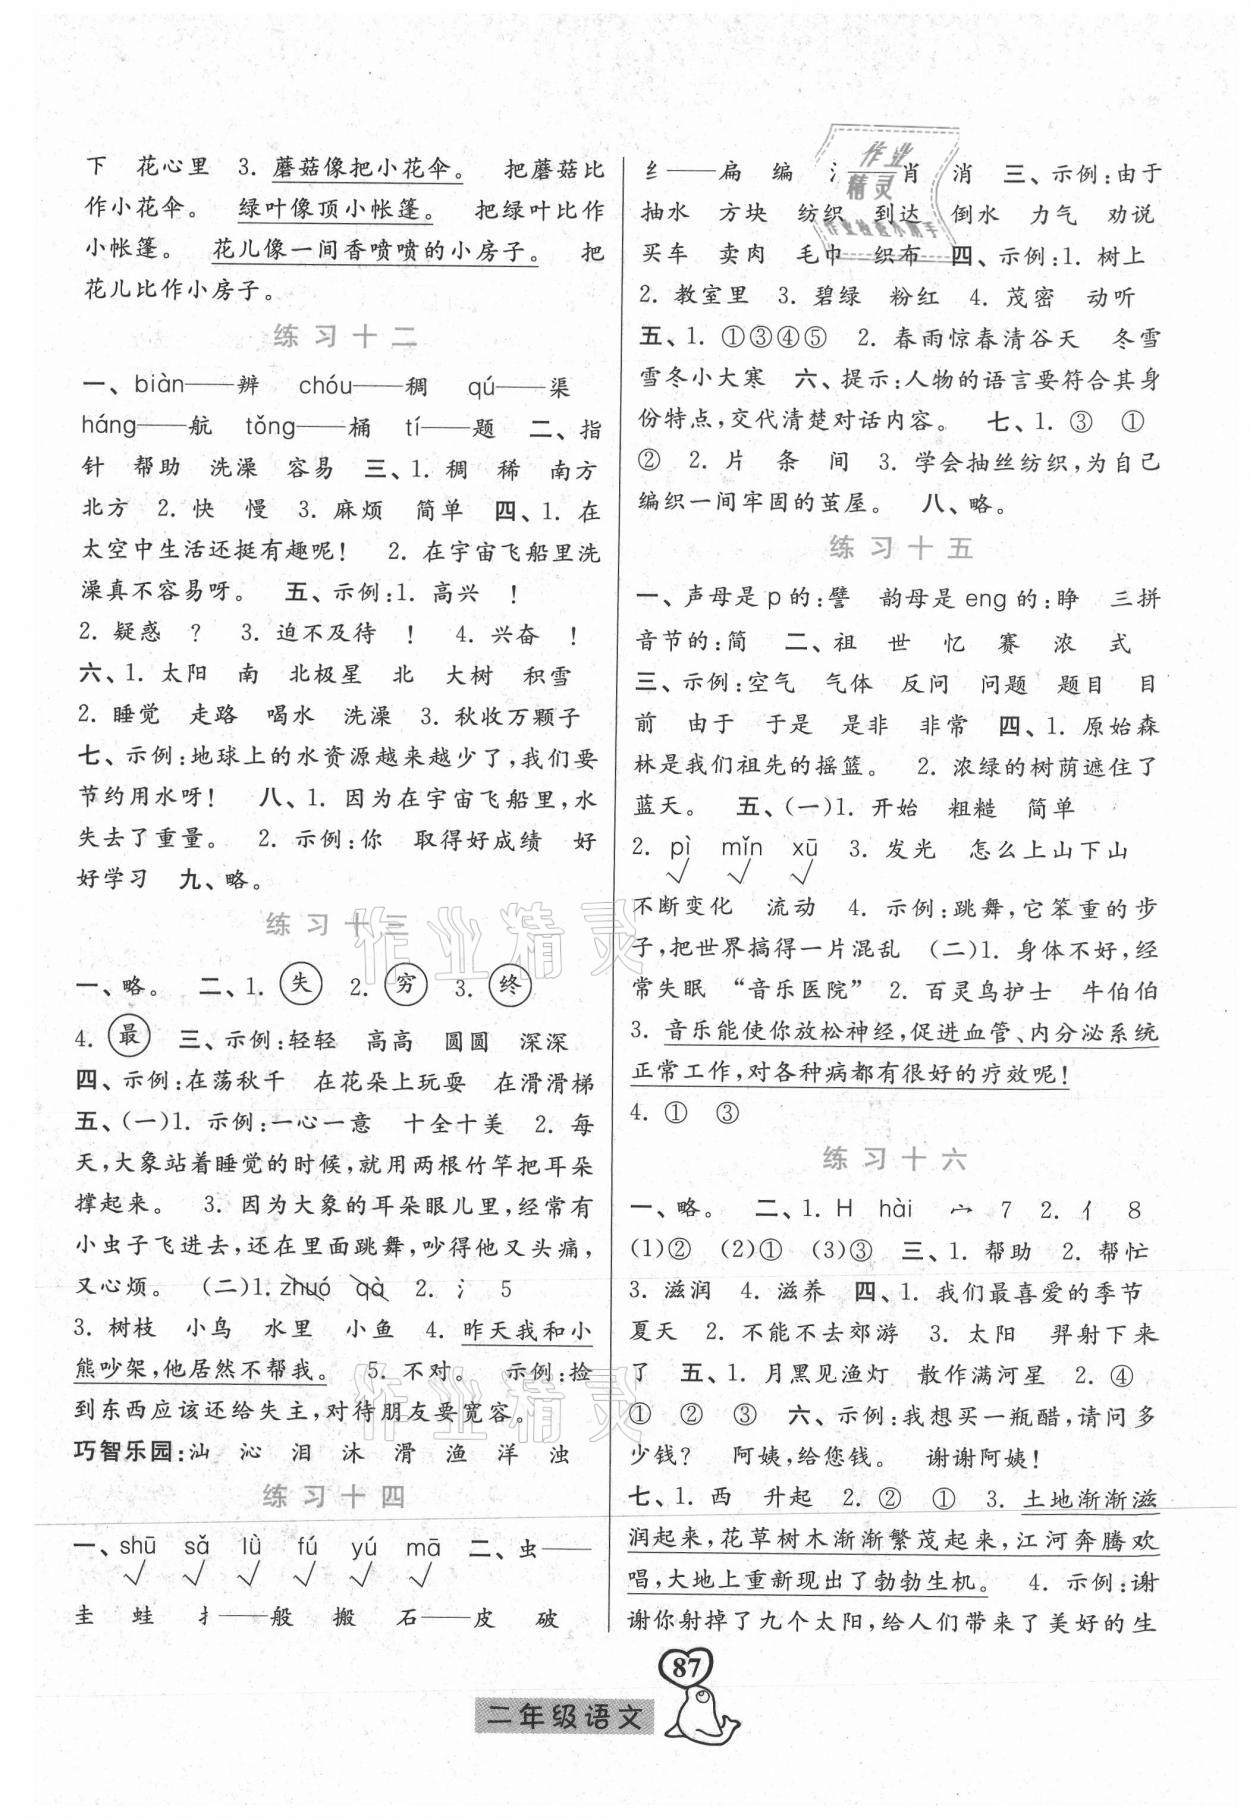 下 花心里 3. 蘑菇像把小花伞。 把蘑菇比
作小花伞。 绿叶像顶小帐篷。 把绿叶比作
小帐篷。 花儿像一间香喷喷的小房子。 把
花儿比作小房子。
练习十二
一、biàn——辨 chóu——稠 qú——渠
háng——航 tǒng——桶 tí——题 二、指
针 帮助 洗澡 容易 三、1. 稠 稀 南方
北方 2. 快 慢 3. 麻烦 简单 四、1. 在
太空中生活还挺有趣呢! 2. 在宇宙飞船里洗
澡真不容易呀。 五、示例:1. 高兴 !
2. 疑惑 ? 3. 迫不及待 ! 4. 兴奋 !
六、1. 太阳 南 北极星 北 大树 积雪
2. 睡觉 走路 喝水 洗澡 3. 秋收万颗子
七、示例:地球上的水资源越来越少了,我们要
节约用水呀! 八、1. 因为在宇宙飞船里,水
失去了重量。 2. 示例:你 取得好成绩 好
好学习 九、略。
练习十三
一、略。 二、1. 失 2. 穷 3. 终
4. 最 三、示例:轻轻 高高 圆圆 深深
四、示例:在荡秋千 在花朵上玩耍 在滑滑梯
五、(一)1. 示例:一心一意 十全十美 2. 每
天,大象站着睡觉的时候,就用两根竹竿把耳朵
撑起来。 3. 因为大象的耳朵眼儿里,经常有
小虫子飞进去,还在里面跳舞,吵得他又头痛,
又心烦。 (二)1. zhuó qà 2. 氵 5
3. 树枝 小鸟 水里 小鱼 4. 昨天我和小
熊吵架,他居然不帮我。 5. 不对。 示例:捡
到东西应该还给失主,对待朋友要宽容。
巧智乐园:汕 沁 泪 沐 滑 渔 洋 浊
练习十四
一、shū sǎ lǜ fú yú mā 二、虫——
圭 蛙 扌——般 搬 石——皮 破
纟——扁 编 氵——肖 消 三、示例:由于
抽水 方块 纺织 到达 倒水 力气 劝说
买车 卖肉 毛巾 织布 四、示例:1. 树上
2. 教室里 3. 碧绿 粉红 4. 茂密 动听
五、1. ①③④⑤ 2. 春雨惊春清谷天 冬雪
雪冬小大寒 六、提示:人物的语言要符合其身
份特点,交代清楚对话内容。 七、1. ③ ①
② 2. 片 条 间 3. 学会抽丝纺织,为自己
编织一间牢固的茧屋。 八、略。
练习十五
一、声母是p的:譬 韵母是eng的:睁 三拼
音节的:简 二、祖 世 忆 赛 浓 式
三、示例:空气 气体 反问 问题 题目 目
前 由于 于是 是非 非常 四、1. 原始森
林是我们祖先的摇篮。 2. 浓绿的树荫遮住了
蓝天。 五、(一)1. 开始 粗糙 简单
2. pì mǐn xū 3. 发光 怎么上山下山
不断变化 流动 4. 示例:跳舞,它笨重的步
子,把世界搞得一片混乱 (二)1. 身体不好,经
常失眠 “音乐医院” 2. 百灵鸟护士 牛伯伯
3. 音乐能使你放松神经,促进血管、内分泌系统
正常工作,对各种病都有很好的疗效呢!
4. ① ③
练习十六
一、略。 二、1. H hài 宀 7 2. 亻 8
(1)② (2)① (3)③ 三、1. 帮助 2. 帮忙
3. 滋润 4. 滋养 四、1. 我们最喜爱的季节
夏天 2. 不能不去郊游 3. 太阳 羿射下来
了 五、1. 月黑见渔灯 散作满河星 2. ④
① ② ③ 六、示例:我想买一瓶醋,请问多
少钱? 阿姨,给您钱。 谢谢阿姨!
七、1. 西 升起 2. ② ① 3. 土地渐渐滋
润起来,花草树木渐渐繁茂起来,江河奔腾欢
唱,大地上重新现出了勃勃生机。 4. 示例:谢
谢你射掉了九个太阳,给人们带来了美好的生
87
二年级语文
作业精灵
作业精灵
作业
精灵